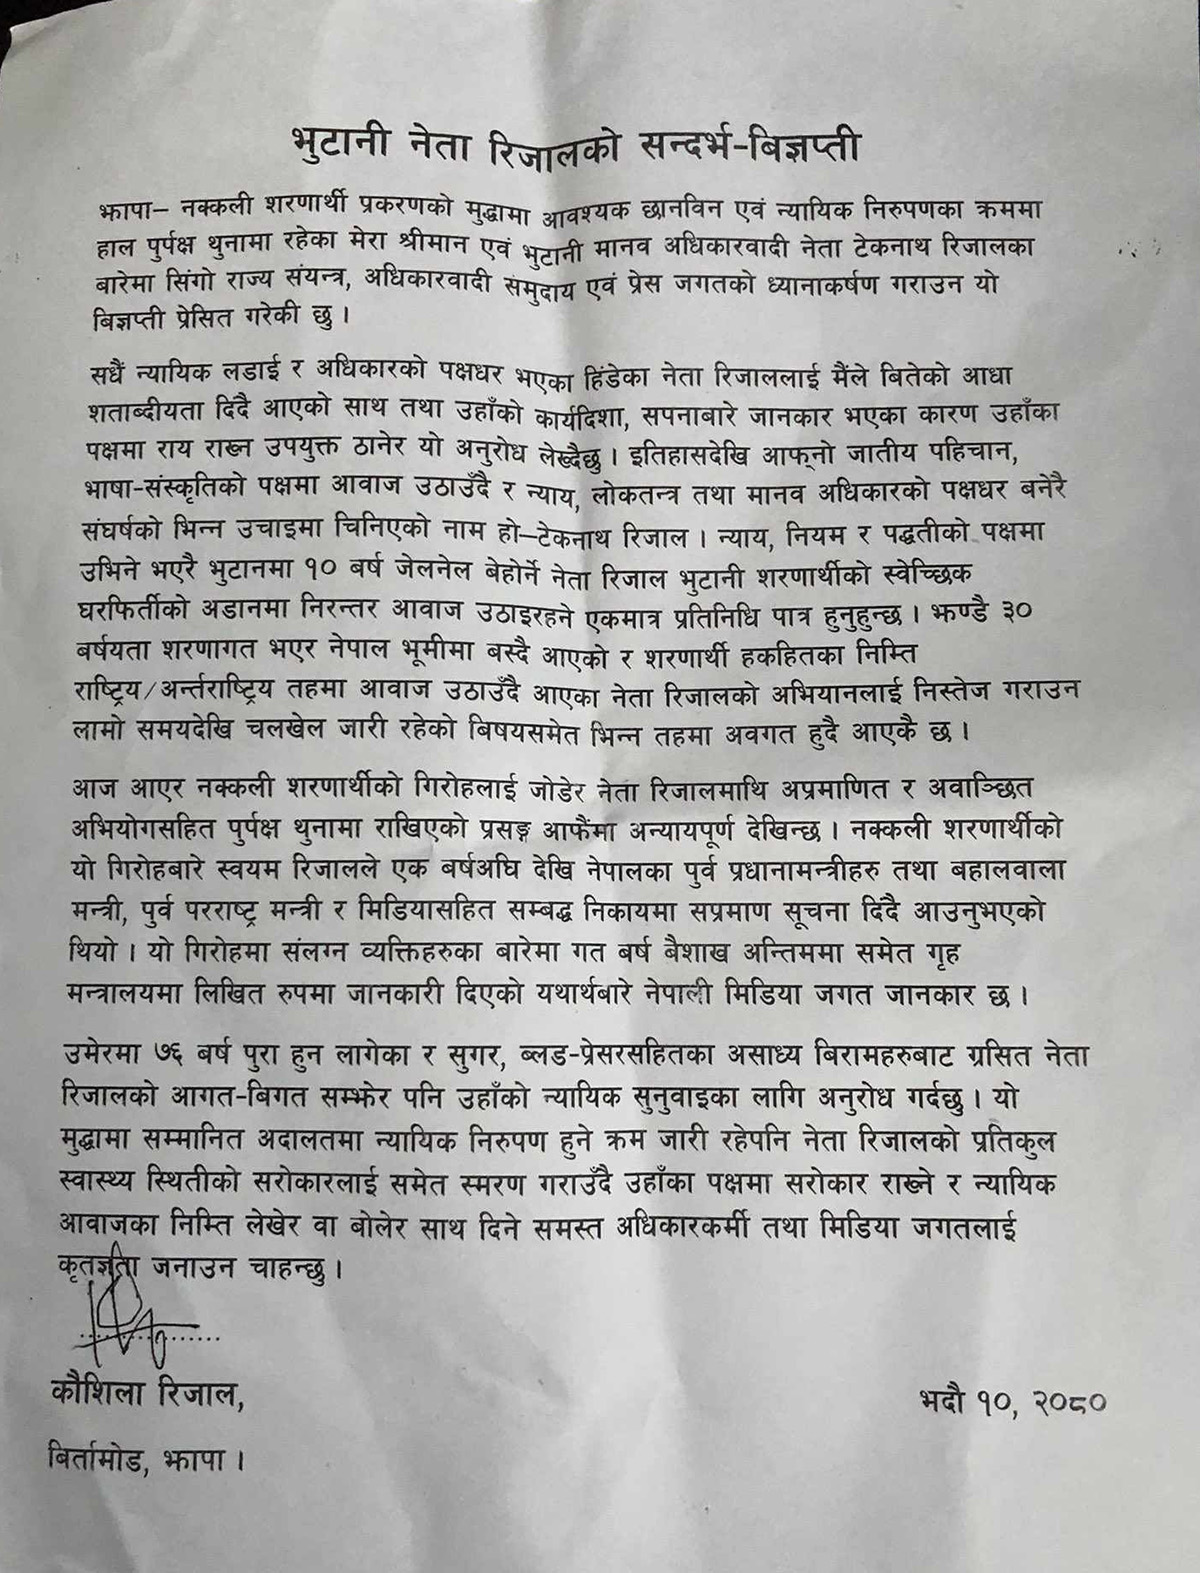 भुटानी नेता रिजालको सन्दर्भ-बिज्ञप्ती
झापा– नक्कली शरणार्थी प्रकरणको मुद्धामा आवश्यक छानविन एवं न्यायिक निरुपणका क्रममा
हाल पुर्पक्ष थुनामा रहेका मेरा श्रीमान एवं भुटानी मानव अधिकारवादी नेता टेकनाथ रिजालका
बारेमा सिंगो राज्य संयन्त्र, अधिकारवादी समुदाय एवं प्रेस जगतको ध्यानाकर्षण गराउन यो
बिज्ञप्ती प्रेसित गरेकी छु ।
सधैं न्यायिक लडाई र अधिकारको पक्षधर भएका हिंडेका नेता रिजाललाई मैंले बितेको आधा
शताब्दीयता दिंदै आएको साथ तथा उहाँको कार्यदिशा, सपनाबारे जानकार भएका कारण उहाँका
पक्षमा राय राख्न उपयुक्त ठानेर यो अनुरोध लेख्दैछु । इतिहासदेखि आफ्नो जातीय पहिचान,
भाषा-संस्कृतिको पक्षमा आवाज उठाउँदै र न्याय, लोकतन्त्र तथा मानव अधिकारको पक्षधर बनेरै
संघर्षको भिन्न उचाइमा चिनिएको नाम हो–टेकनाथ रिजाल । न्याय, नियम र पद्धतीको पक्षमा
उभिने भएरै भुटानमा १० बर्ष जेलनेल बेहोर्ने नेता रिजाल भुटानी शरणार्थीको स्वेच्छिक
घरफिर्तीको अडानमा निरन्तर आवाज उठाइरहने एकमात्र प्रतिनिधि पात्र हुनुहुन्छ । झण्डै ३०
बर्षयता शरणागत भएर नेपाल भूमीमा बस्दै आएको र शरणार्थी हकहितका निम्ति
राष्ट्रिय/अर्न्तराष्ट्रिय तहमा आवाज उठाउँदै आएका नेता रिजालको अभियानलाई निस्तेज गराउन
लामो समयदेखि चलखेल जारी रहेको बिषयसमेत भिन्न तहमा अवगत हुदै आएकै छ ।
आज आएर नक्कली शरणार्थीको गिरोहलाई जोडेर नेता रिजालमाथि अप्रमाणित र अवाञ्छित
अभियोगसहित पुर्पक्ष थुनामा राखिएको प्रसङ्ग आफैंमा अन्यायपूर्ण देखिन्छ । नक्कली शरणार्थीको
यो गिरोहबारे स्वयम रिजालले एक बर्षअघि देखि नेपालका पुर्व प्रधानामन्त्रीहरु तथा बहालवाला
मन्त्री, पुर्व परराष्ट्र मन्त्री र मिडियासहित सम्बद्ध निकायमा सप्रमाण सूचना दिंदै आउनुभएको
थियो । यो गिरोहमा संलग्न व्यक्तिहरुका बारेमा गत बर्ष बैशाख अन्तिममा समेत गृह
मन्त्रालयमा लिखित रुपमा जानकारी दिएको यथार्थबारे नेपाली मिडिया जगत जानकार छ ।
उमेरमा ७६ बर्ष पुरा हुन लागेका र सुगर, ब्लड-प्रेसरसहितका असाध्य बिरामहरुबाट ग्रसित नेता
रिजालको आगत-बिगत सम्झेर पनि उहाँको न्यायिक सुनुवाइका लागि अनुरोध गर्दछु । यो
मुद्धामा सम्मानित अदालतमा न्यायिक निरुपण हुने क्रम जारी रहेपनि नेता रिजालको प्रतिकुल
स्वास्थ्य स्थितीको सरोकारलाई समेत स्मरण गराउँदै उहाँका पक्षमा सरोकार राख्ने र न्यायिक
आवाजका निम्ति लेखेर वा बोलेर साथ दिने समस्त अधिकारकर्मी तथा मिडिया जगतलाई
कृतज्ञता जनाउन चाहन्छु ।
कौशिला रिजाल,
भदौ १०, २०८०
बिर्तामोड, झापा ।